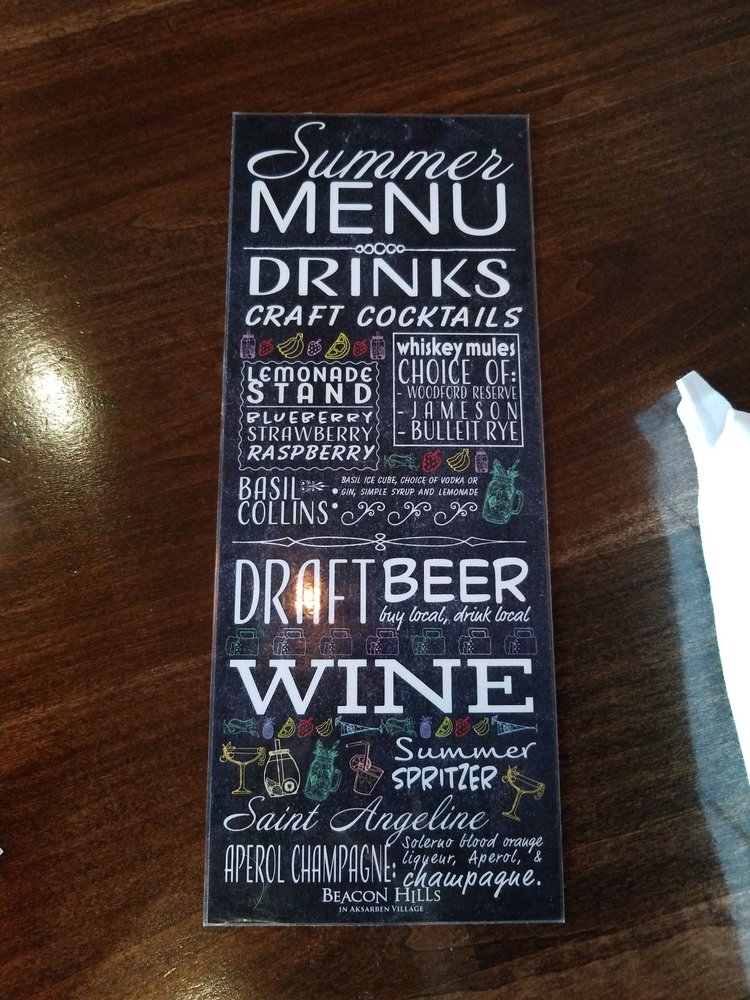 Summer
MENU
DRINKS
CRAFT COCKTAILS
LEMONADE
STAND
BLUEBERRY
STRAWBERRY
RASPBERRY
whiskey mules
CHOICE OF:
- WOODFORD RESERVE
- JAMESON
- BULLEIT RYE
BASIL
COLLINS
BASIL ICE CUBE, CHOICE OF VODKA OR
GIN, SIMPLE SYRUP AND LEMONADE
DRAFT BEER
buy local, drink local
WINE
Summer
SPRITZER
Saint Angeline
APEROL CHAMPAGNE:
Solerno blood orange
liqueur, Aperol, &
champagne.
BEACON HILLS
IN AKSARBEN VILLAGE